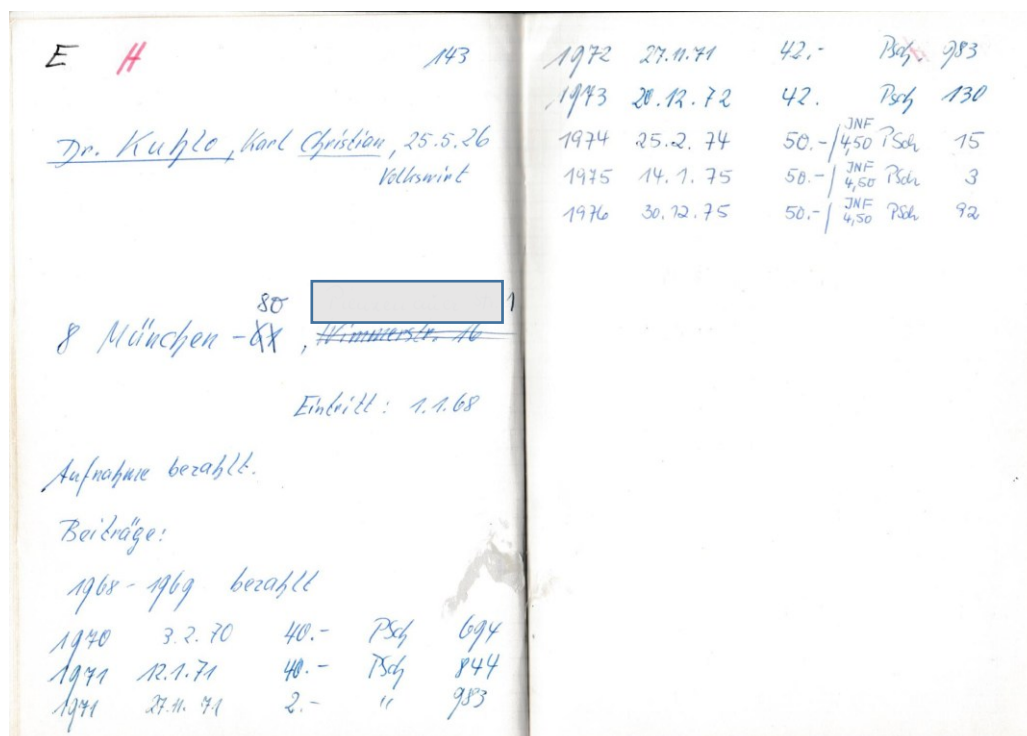 E H 143
Dr. Kuhlo, Karl Christian, 25.5.26
Volkswirt
80 1
8 München - , Wimmerstr. 16
Eintritt: 1.1.68
Aufnahme bezahlt.
Beiträge:
1968 - 1969 bezahlt
1970 3.2.70 40.- PSch 694
1971 12.1.71 40.- PSch 844
1971 27.11.71 2.- " 983
1972 27.11.71 42.- PSch 983
1973 20.12.72 42. PSch 130
1974 25.2.74 50.-/ JNF 4,50 PSch 15
1975 14.1.75 50.-/ JNF 4,50 PSch 3
1976 30.12.75 50.-/ JNF 4,50 PSch 92